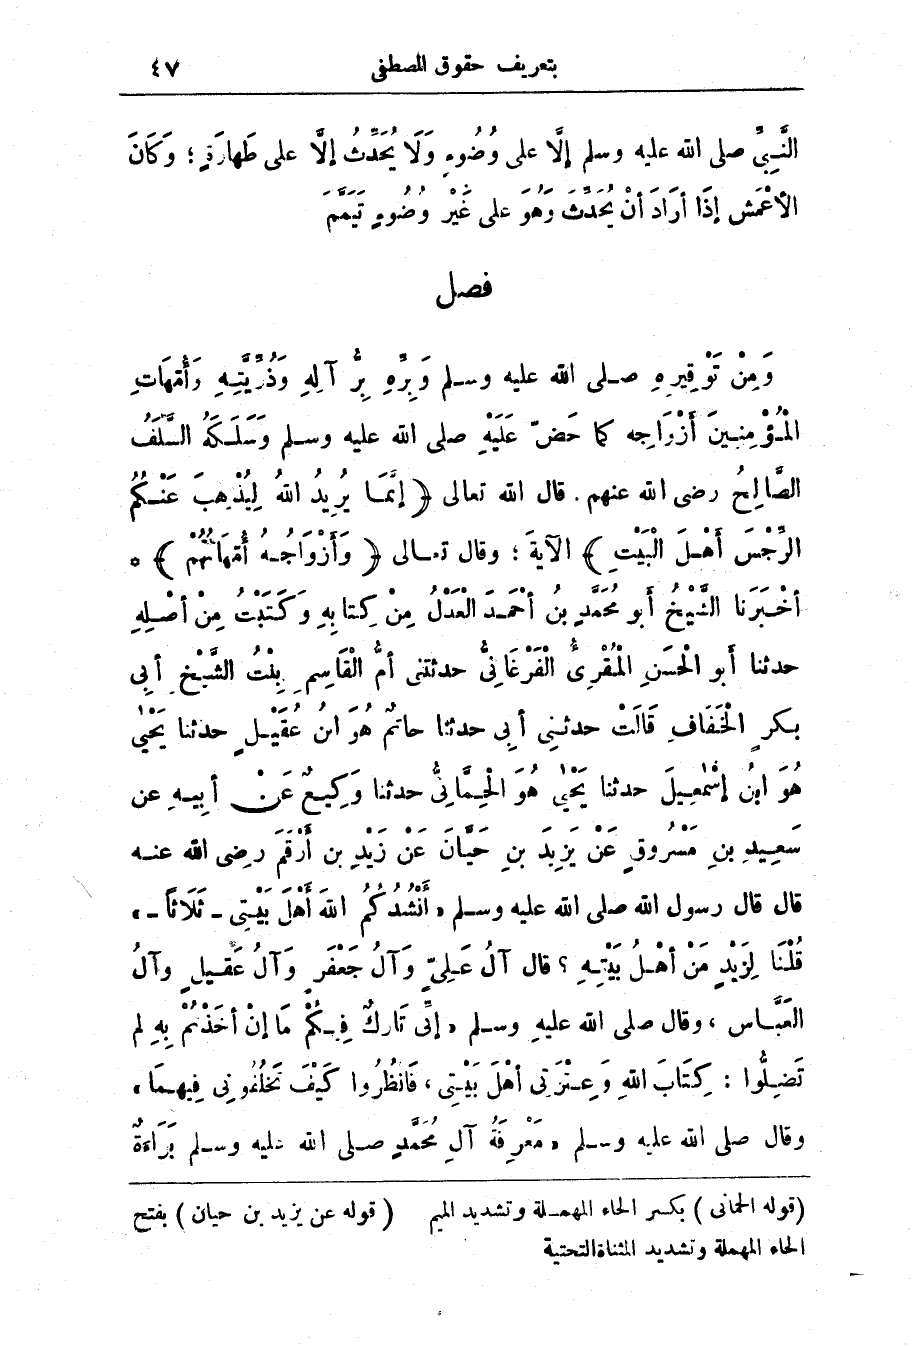 بتعريف حقوق المصطفى ٤٧
النَّبِيِّ صلى الله عليه وسلم إلَّا على وُضُوءٍ وَلَا يُحَدِّثُ إلَّا على طَهارَةٍ ؛ وَكَانَ
الأعْمَش إذَا أرَادَ أنْ يُحَدِّثَ وَهُوَ على غَيْرِ وُضُوءٍ تَيَمَّمَ
فصل
وَمِنْ تَوْقِيرِهِ صلى الله عليه وسلم وَبِرِّهِ بِرُّ آلِهِ وَذُرِّيَّتِهِ وَأُمَّهَاتِ
المُؤْمِنِينَ أزْوَاجِه كما حَضّ عَلَيْهِ صلى الله عليه وسلم وَسَلَكَهُ السَّلَفُ
الصَّالِحُ رضى الله عنهم . قال الله تعالى ﴿ إنَّمَا يُرِيدُ اللهُ لِيُذْهِبَ عَنْكُمُ
الرِّجْسَ أَهْلَ البَيْتِ ﴾ الآيَةَ ؛ وقال تعالى ﴿ وَأَزْوَاجُهُ أُمَّهَاتُهُمْ ﴾ ه
أخْبَرَنا الشَّيْخُ أبو مُحَمَّدٍ بنُ أحْمَدَ العَدْلُ مِنْ كِتابِهِ وَكَتَبْتُ مِنْ أصْلِهِ
حدثنا أبو الْحَسَنِ الْمُقْرِئُ الْفَرْغَانِيُّ حدثتنى أمُّ الْقَاسِمِ بِنْتُ الشَّيْخِ أبِى
بكرٍ الْخَفَافِ قَالَتْ حدثنِى أبِى حدثنا حاتِمٌ هُوَ ابنُ عُقَيْلٍ حدثنا يَحْيٰى
هُوَ ابنُ إسْمٰعِيلَ حدثنا يَحْيٰى هُوَ الْحِمَّانِيُّ حدثنا وَكِيعٌ عَنْ أبِيهِ عن
سَعِيدِ بنِ مَسْرُوقٍ عَنْ يَزِيدَ بنِ حَيَّانَ عَنْ زَيْدِ بنِ أَرْقَمَ رضى الله عنه
قال قال رسول الله صلى الله عليه وسلم « أَنْشُدُكُمُ اللهَ أَهْلَ بَيْتِى - ثَلَاثاً - »
قُلْنَا لِزَيْدٍ مَنْ أهْلُ بَيْتِهِ ؟ قال آلُ عَلِىّ وَآلُ جَعْفَرٍ وَآلُ عَقِيلٍ وآلُ
العَبَّاس ، وقال صلى الله عليهِ وسلم « إنِّى تَارِكٌ فِيكُمْ مَا إنْ أَخَذْتُمْ بِهِ لم
تَضِلُّوا : كِتَابَ اللهِ وَعِتْرَتِى أَهْلَ بَيْتِى ، فَانْظُرُوا كَيْفَ تَخْلُفُونِى فِيهِمَا »
وقال صلى الله عليه وسلم « مَعْرِفَةُ آلِ مُحَمَّدٍ صلى الله عليه وسلم بَرَاءَةٌ
(قوله الحمانى) بكسر الحاء المهملة وتشديد الميم (قوله عن يزيد بن حيان) بفتح
الحاء المهملة وتشديد المثناة التحتية